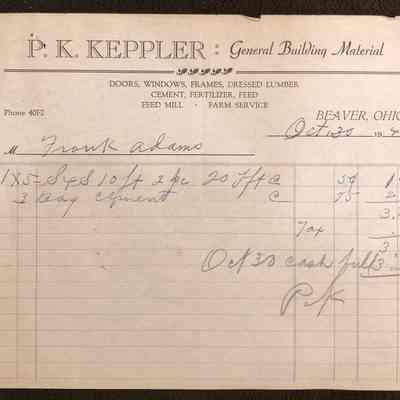 P. K. KEPPLER: General Building Material
DOORS, WINDOWS, FRAMES, DRESSED LUMBER
CEMENT, FERTILIZER, FEED
FEED MILL · FARM SERVICE
Phone 40F2
BEAVER, OHIO
Oct. 30 19
M Frank Adams
1X5 S4S 10 ft 2 pc 20 Ft @ 5¢ 1
3 Bag cement @ 75 2
Tax
3
Oct 30 cash full 3
PK